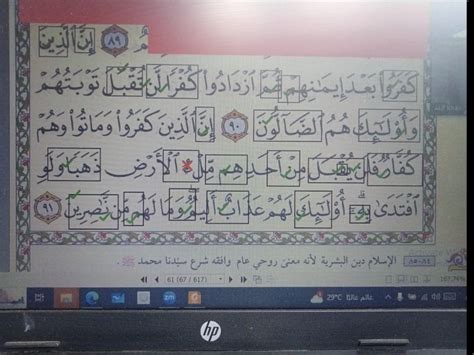 ۸۹ إِنَّ ٱلَّذِينَ
كَفَرُوا۟ بَعْدَ إِيمَـٰنِهِمْ ثُمَّ ٱزْدَادُوا۟ كُفْرًا لَّن تُقْبَلَ تَوْبَتُهُمْ
وَأُو۟لَـٰٓئِكَ هُمُ ٱلضَّآلُّونَ ۹۰ إِنَّ ٱلَّذِينَ كَفَرُوا۟ وَمَاتُوا۟ وَهُمْ
كُفَّارٌ فَلَن يُقْبَلَ مِنْ أَحَدِهِم مِّلْءُ ٱلْأَرْضِ ذَهَبًا وَلَوِ
ٱفْتَدَىٰ بِهِۦٓ ۗ أُو۟لَـٰٓئِكَ لَهُمْ عَذَابٌ أَلِيمٌ وَمَا لَهُم مِّن نَّـٰصِرِينَ ۹۱
الإسلام دين البشرية لأنه معنى روحي عام وافقه شرع سيدنا محمد ﷺ.
61 (67 / 617)
29°C
hp